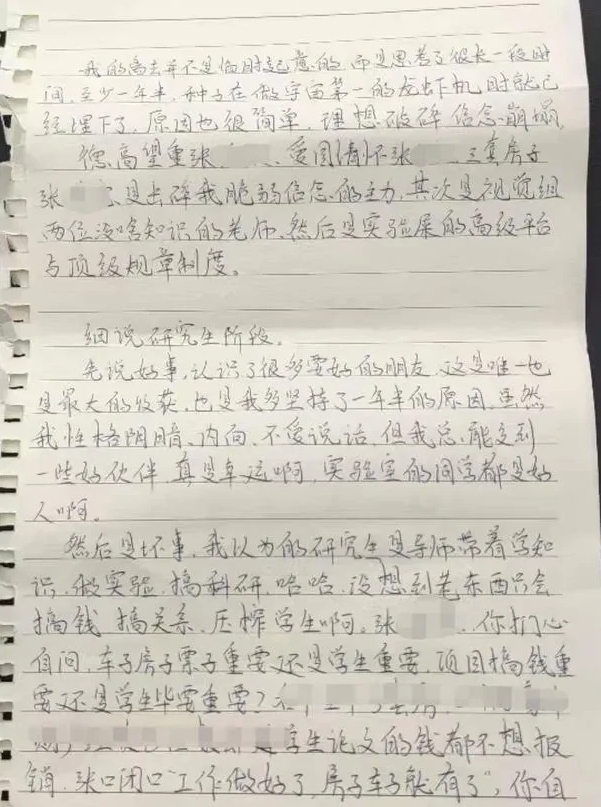 我的离去并不是临时起意的,而是思考了很长一段时
间,至少一年半,种子在做宇宙第一的龙出下机时就已
经埋下了,原因也很简单,理想破碎 信念崩塌
德高望重张 、爱国情怀张 、三套房子
张 是击碎我脆弱信念的主力,其次是视觉组
两位没啥知识的老师、然后是实验属的高级平台
与顶级规章制度。
细说研究生阶段。
先说好事,认识了很多要好的朋友,这是唯一也
是最大的收获,也是我多坚持了一年半的原因,虽然
我性格阴暗、内向、不爱说话,但我总能交到
一些好伙伴,真是幸运啊,实验室的同学都是好
人啊。
然后是坏事,我以为的研究生是导师带着学知
识,做实验,搞科研,哈哈,没想到老东西只会
搞钱 搞关系、压榨学生啊。张 ,你扪心
自问,车子房子票子重要还是学生重要,项目搞钱重
要还是学生毕业重要?
学生论文的钱都不想报
销,张口闭口“工作做好了,房子车子就有了”,你自